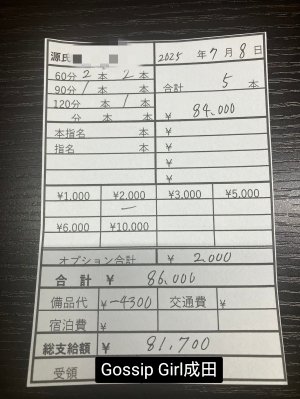 源氏■ 2025年7月8日
60分 2本 2本
90分 1本 本 合計 5本
120分 本 1本 ¥ 84,000
分 本 本 ¥
本指名 本 ¥
指名 本 ¥
¥
¥
¥1,000 ¥2,000 ¥3,000 ¥5,000
一
¥6,000 ¥10,000
オプション合計 ¥ 2,000
合計 ¥ 86,000
備品代 ¥-4300 交通費 ¥
宿泊費 ¥
総支給額 ¥ 81,700
受領
Gossip Girl成田